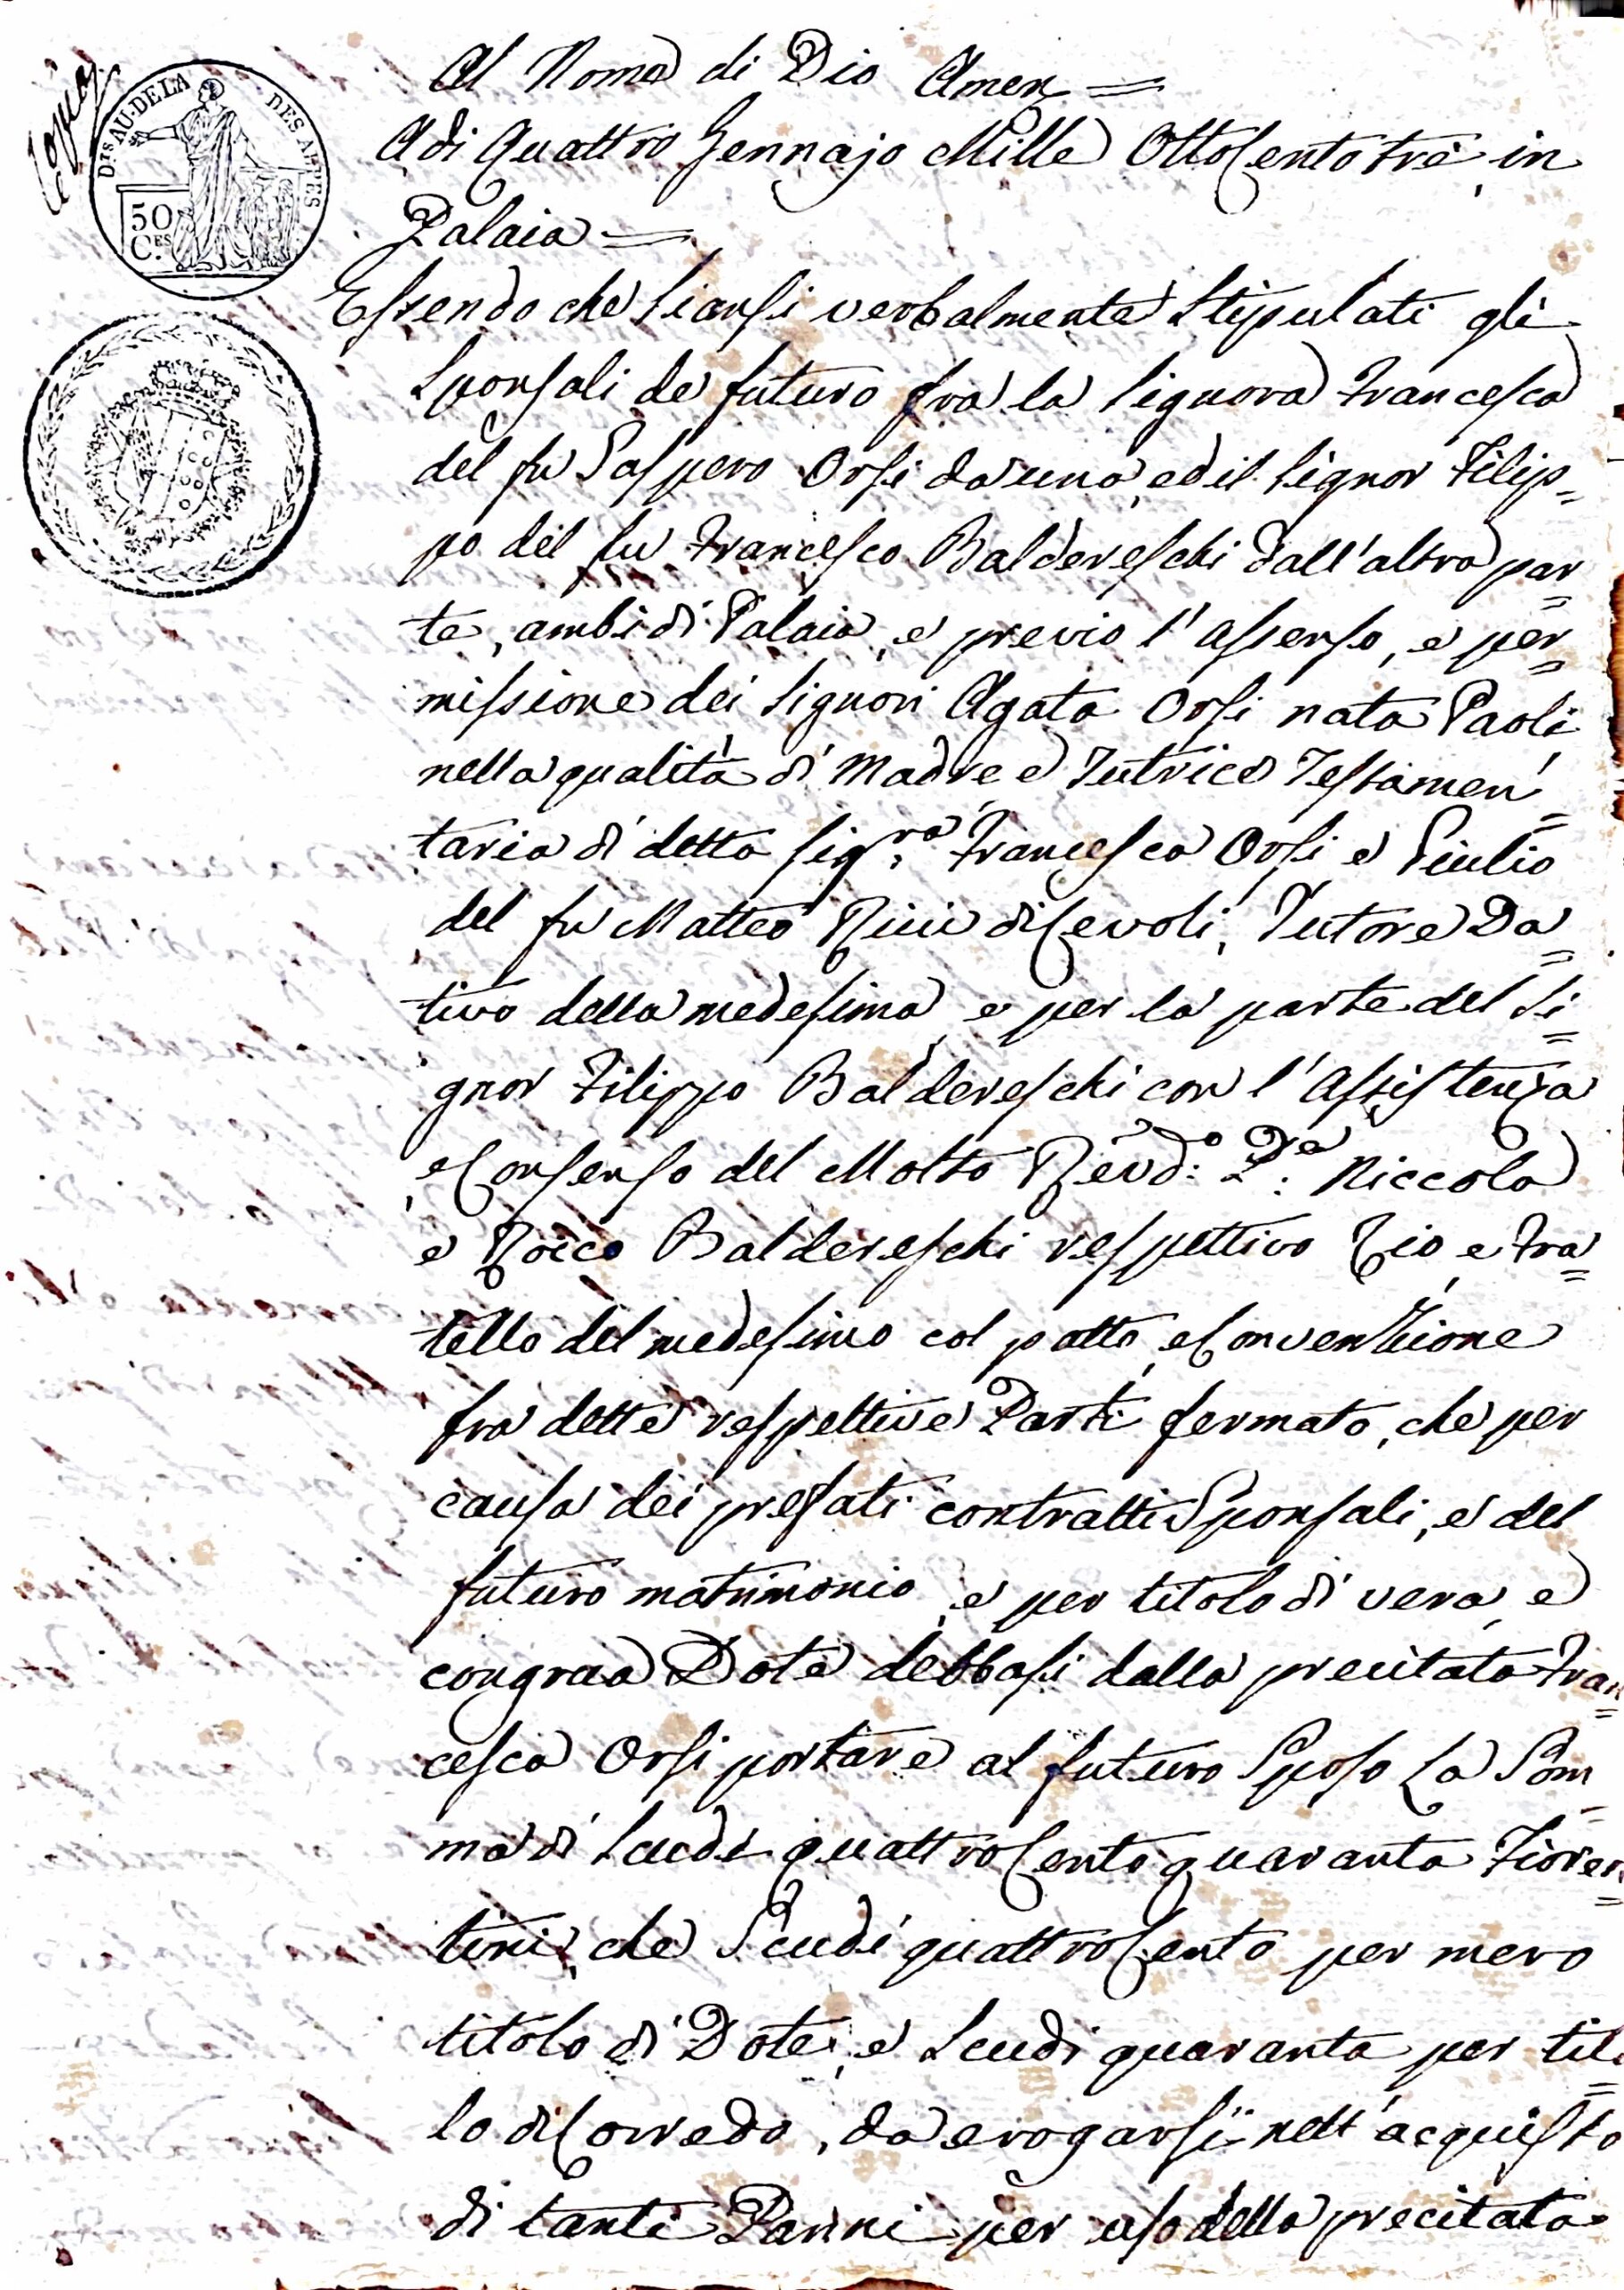 Copia
DIS AU-DELA DES ALPES
50
CES
C.
Al Nome di Dio Amen =
Adi Quattro Gennajo Mille Ottocento tre, in
Palaia =
Essendo che siansi verbalmente stipulati gli
sponsali de futuro fra la Signora Francesca
del fu Gaspero Orsi da una, ed il Signor Filip=
po del fu Francesco Baldereschi dall'altra par=
te, ambi di Palaia, e previo l'assenso, e per=
missione dei Signori Agata Orsi nata Paoli
nella qualità di Madre e Tutrice Testamen=
taria di detta Sig.ra Francesca Orsi e Giulio
del fu Matteo Ricci di Cevoli, Tutore Da=
tivo della medesima, e per la parte del Si=
gnor Filippo Baldereschi con l'Assistenza
e Consenso del Molto Revd:o Pre: Niccola
e Rocco Baldereschi respettivo Zio, e Fra=
tello del medesimo col patto, e Convenzione
fra dette respettive Parti fermato, che per
causa dei prefati contratti Sponsali, e del
futuro matrimonio, e per titolo di vera, e
congrua Dote debbasi dalla precitata Fran=
cesca Orsi portare al futuro Sposo La Som=
ma di Scudi quattroCento quaranta Fioren=
tini, che Scudi quattroCento per mero
titolo di Dote, e Scudi quaranta per tito=
lo di Corredo, da erogarsi nell'acquisto
di tanti Panni per uso della precitata